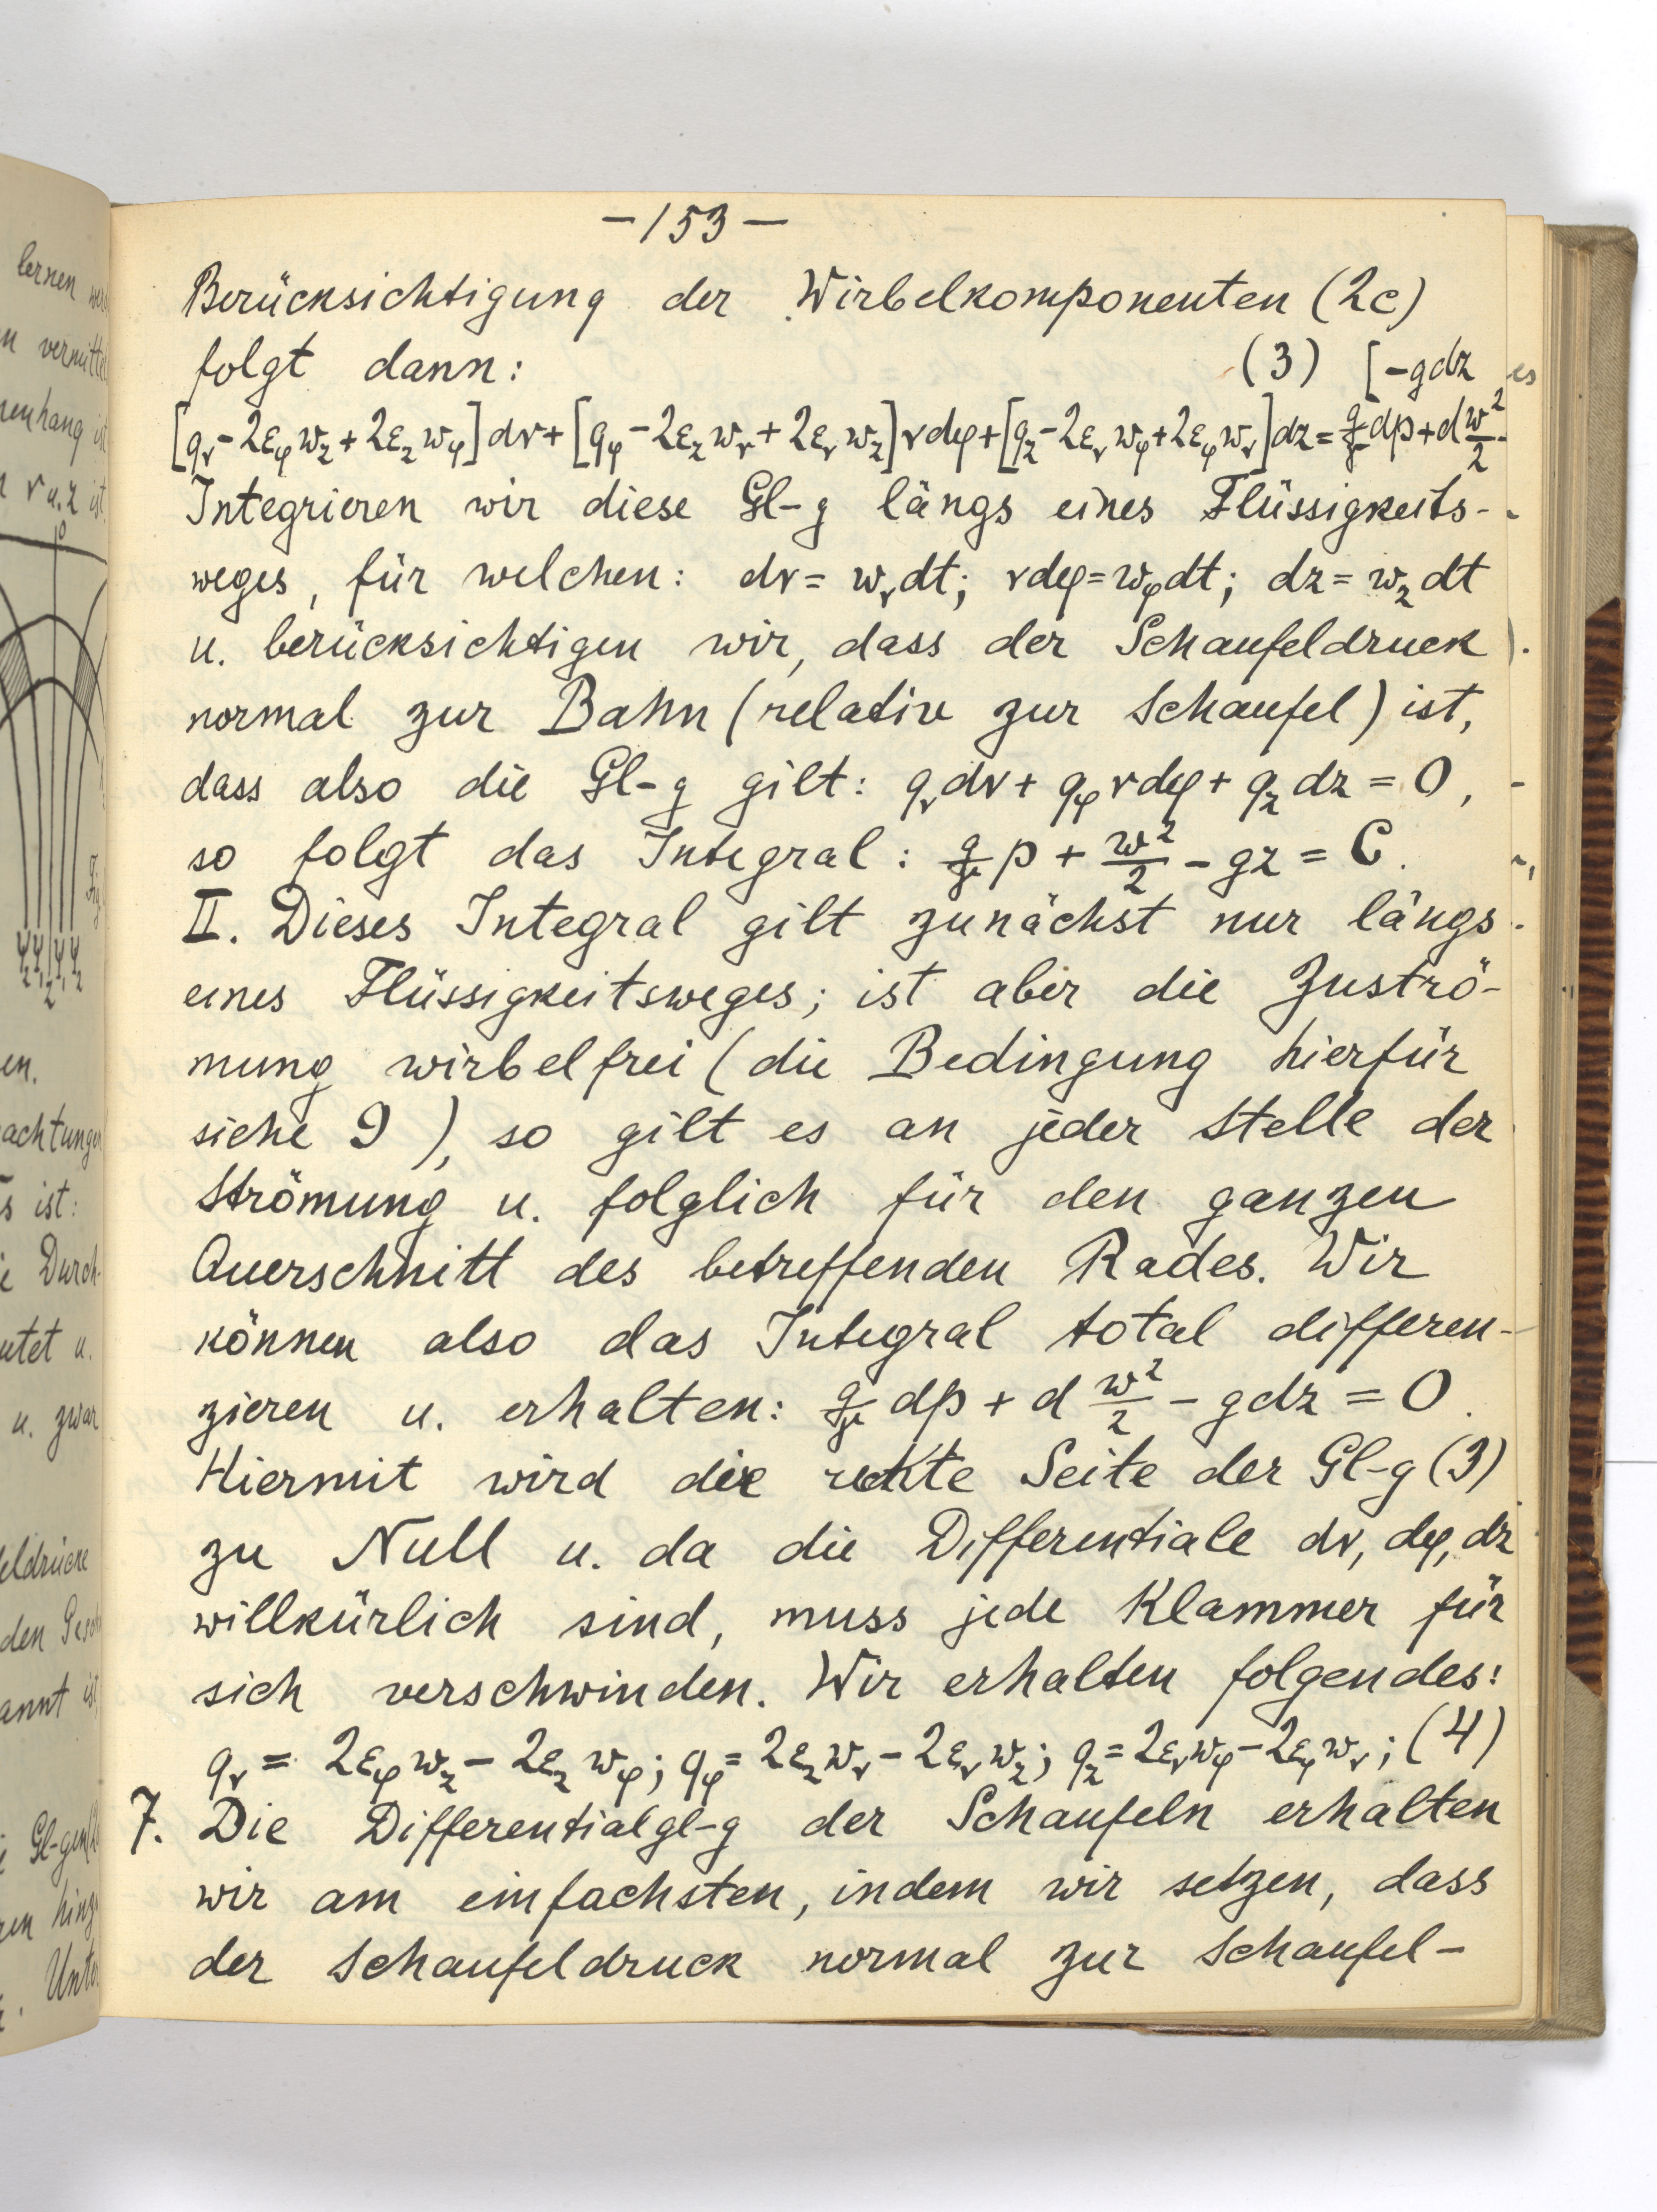 lernen
n vermittel
enhang ist
r u. z ist
en.
achtungen
s ist:
Durch-
utet u.
u. zwar
eldrücke
den
annt ist
Gl-gen
Unter
-153-
Berücksichtigung der Wirbelkomponenten (2c)
folgt dann: (3) [-gdz
[qᵣ-2εᵩw_z+2ε_zwᵩ]dr+[qᵩ-2ε_zwᵣ+2εᵣw_z]rdφ+[q_z-2εᵣwᵩ+2εᵩwᵣ]dz=g/γ dp+d w²/2-
Integrieren wir diese Gl-g längs eines Flüssigkeits-
weges, für welchen: dr=wᵣdt; rdφ=wᵩdt; dz=w_zdt
u. berücksichtigen wir, dass der Schaufeldruck
normal zur Bahn (relativ zur Schaufel) ist,
dass also die Gl-g gilt: qᵣdr+qᵩrdφ+q_zdz=0,
so folgt das Integral: g/γ p + w²/2 - gz = C.
II. Dieses Integral gilt zunächst nur längs
eines Flüssigkeitsweges; ist aber die Zuströ-
mung wirbelfrei (die Bedingung hierfür
siehe 9), so gilt es an jeder Stelle der
Strömung u. folglich für den ganzen
Querschnitt des betreffenden Rades. Wir
können also das Integral total differen-
zieren u. erhalten: g/γ dp + d w²/2 - gdz = 0.
Hiermit wird die rechte Seite der Gl-g (3)
zu Null u. da die Differentiale dr, dφ, dz
willkürlich sind, muss jede Klammer für
sich verschwinden. Wir erhalten folgendes:
qᵣ = 2εᵩw_z - 2ε_zwᵩ; qᵩ = 2ε_zwᵣ - 2εᵣw_z; q_z = 2εᵣwᵩ - 2εᵩwᵣ; (4)
7. Die Differentialgl-g der Schaufeln erhalten
wir am einfachsten, indem wir setzen, dass
der Schaufeldruck normal zur Schaufel-